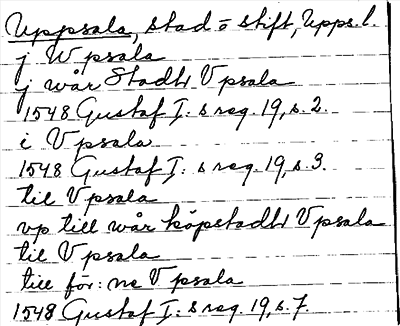 Uppsala, stad o stift, Upps. l.
j Wpsala
j wår Stadht Vpsala
1548 Gustaf I:s reg. 19, s. 2.
i Vpsala
1548 Gustaf I:s reg. 19, s. 3.
till Vpsala
vp till wår köpstadht Vpsala
till Vpsala
till för:ne Vpsala
1548 Gustaf I:s reg. 19, s. 7.